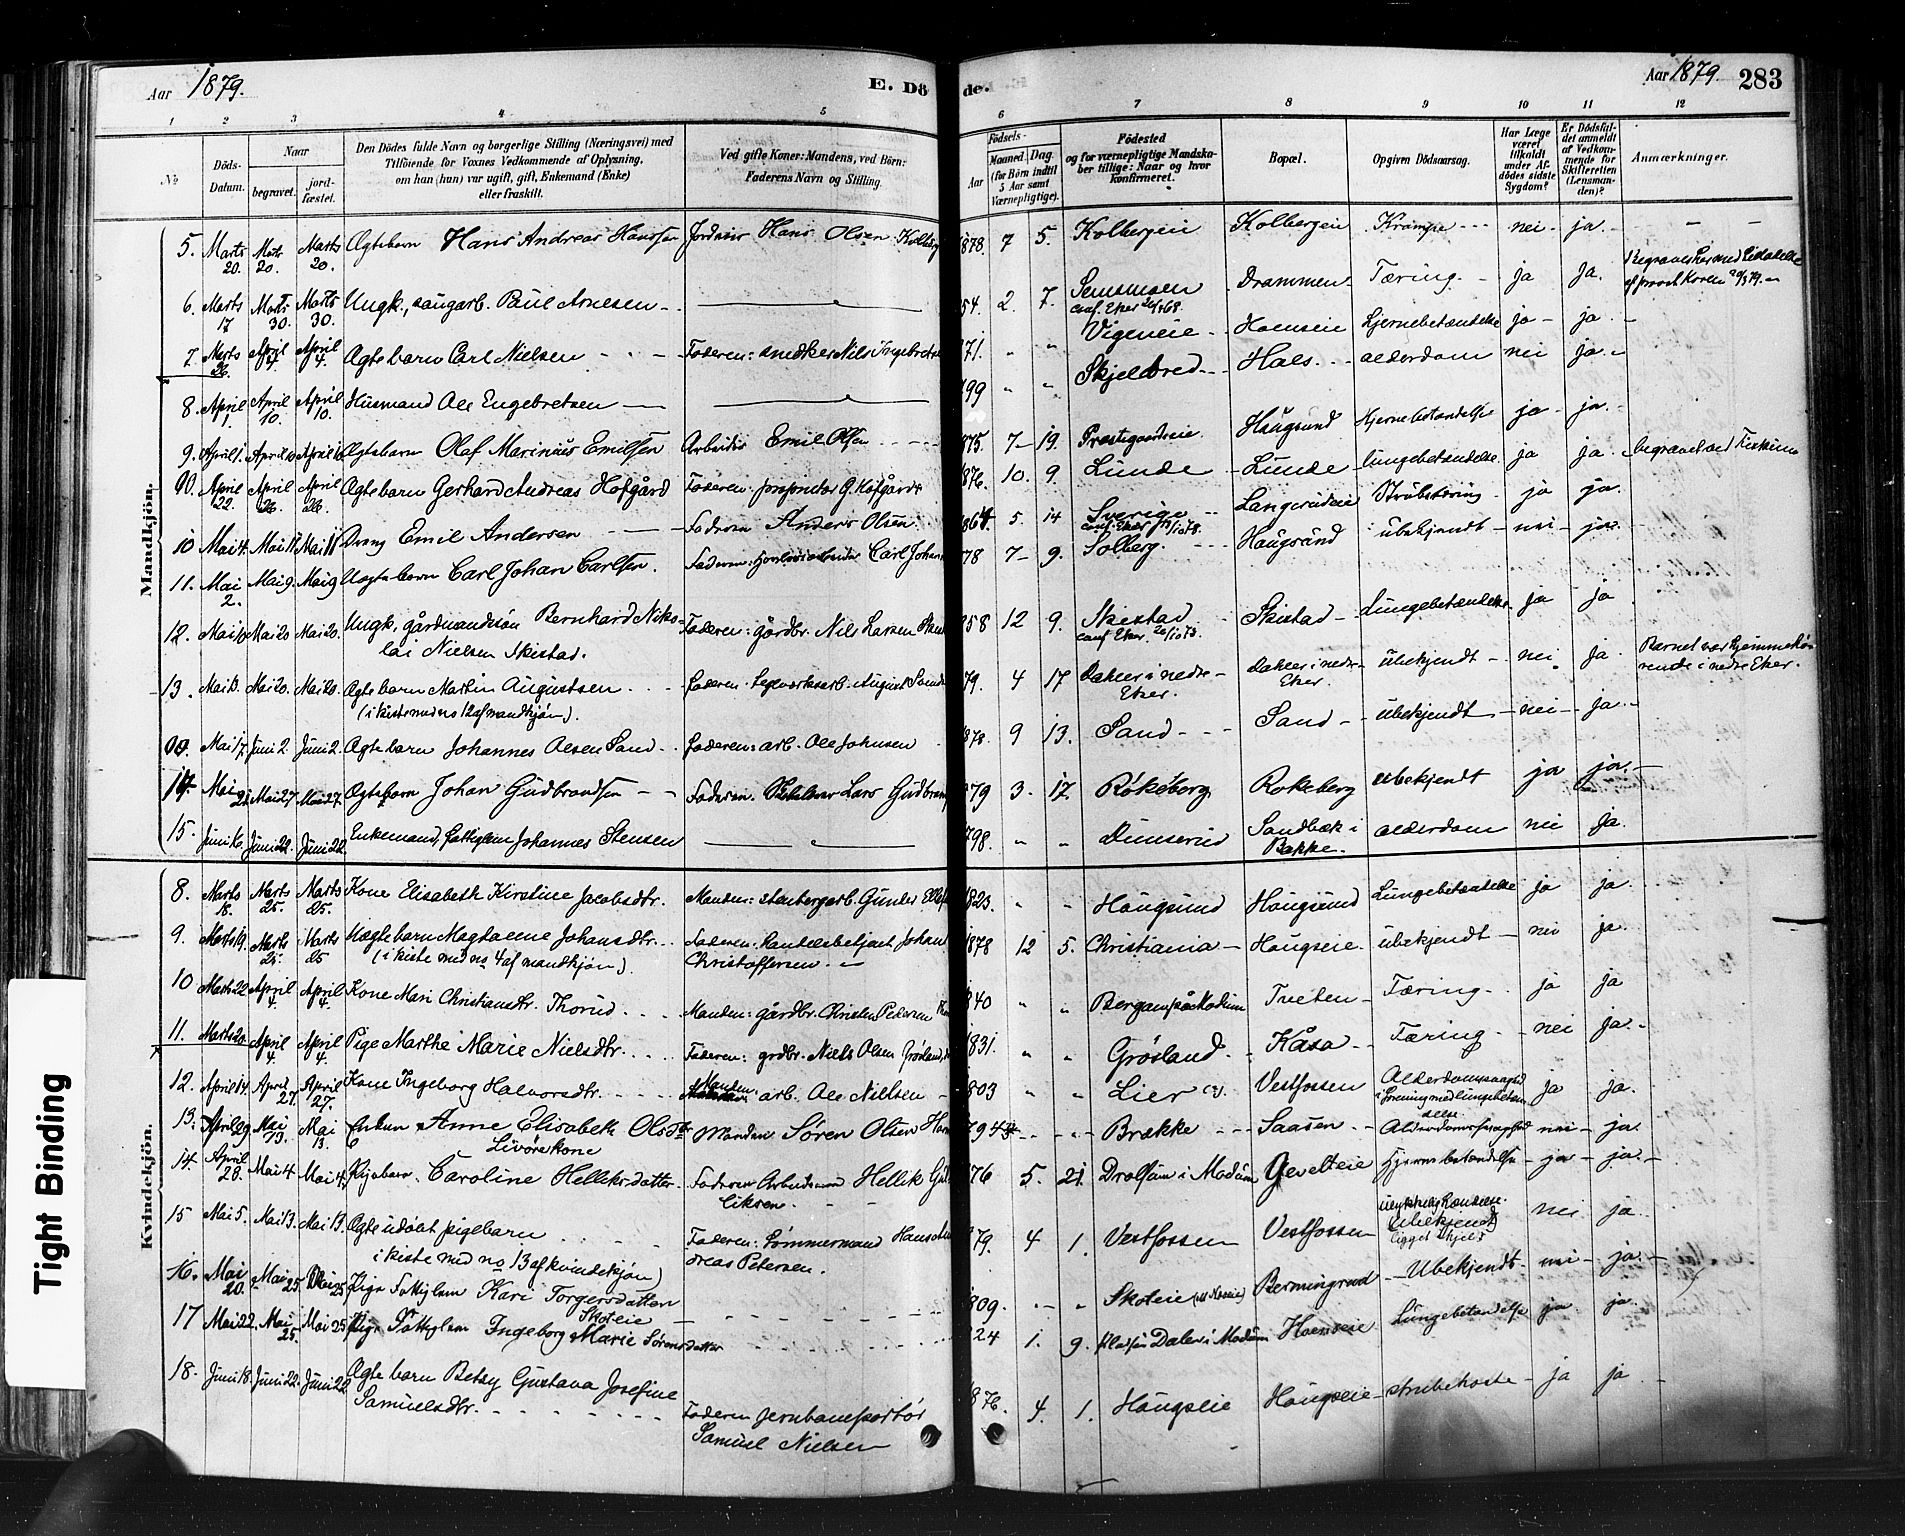 Aar 1879.
E. Dö
de.
Aar 1879. 283
1 2 3 4 5 6 7 8 9 10 11 12
No
Döds-Datum.
Naar
begravet.
jord-fæstet.
Den Dödes fulde Navn og borgerlige Stilling (Næringsvei) med
Tilföiende for Voxnes Vedkommende af Oplysning,
om han (hun) var ugift, gift, Enkemand (Enke)
eller fraskilt.
Ved gifte Koner: Mandens, ved Börn:
Faderens Navn og Stilling.
Födsels-
Aar Maaned. Dag.
(for Börn indtil
5 Aar samt
Værnepligtige).
Födested
og for værnepligtige Mandska-
ber tillige: Naar og hvor
konfirmeret.
Bopæl.
Opgiven Dödsaarsag.
Har Læge
været
tilkaldt
under Af-
dödes sidste
Sygdom?
Er Dödsfal-
det anmeldt
af Vedkom-
mende for
Skifteretten
(Lensman-
den)?
Anmærkninger.
Mandkjön.
5. Marts 20. Marts 20. Marts 20. Ægtebarn Hans Andreas Hansen Hans Olsen 878. 7 5. Kolbergeie Kolbergeie Krampe nei ja
6. Marts 17 Marts 30. Marts 30. Ungk., saugarb. Paul Arnesen 54. 2. 7. Semsmoen Drammen Tæring ja ja.
conf. Eker
7. Marts 26. April 4. April 4. Ægtebarn Carl Nielsen Faderen: snedker Nils Ingebretsen 71. " " Vigeneie Hoenseie Hjernebetændelse ja ja.
8. April 1. April 10. April 10. Husmand Ole Engebretsen 799 " " Skjelbred Hals alderdom nei ja.
9. April 1. April 10 April 10 Ægtebarn Olaf Marinius Emilsen Arbeider Emil Olsen 875. 7 19. Præstegaardseie Haugsund Hjernebetændelse ja ja.
10. April 22. April 26. April 26. Ægtebarn Gerhard Andreas Hofgård Faderen: proprietær G. Hofgård 1876. 10. 9. Lunde Lunde lungebetændelse ja ja. begravet ved
10 Mai 4. Mai 11. Mai 11. Dreng Emil Andersen Faderen Anders Olsen. 1864 5. 14 Sverige Langerudeie Strubetæring ja ja.
11. Mai 2. Mai 9. Mai 9 Uægtebarn Carl Johan Carlsen. Faderen: Carl Johan 78 7 9. Solberg. Haugsund ubekjendt nei ja.
12. Mai 10 Mai 20 Mai 20. Ungk, gårdmandssøn Bernhard Niko-
lai Nielsen Skistad. Faderen: gårdbr. Nils Larsen 858 12 9. Skistad Skistad Lungebetændelse ja ja
13. Mai 13. Mai 20. Mai 20. Ægtebarn Martin Augustsen Faderen: August 79. 4 17 Bakker i nedre Eker. Bakker i nedre Eker. ubekjendt nei ja. Barnet var hjemmehø-
rende i nedre Eker.
(i kiste med no 12 af mandkjøn).
Mai 17. Juni 2. Juni 2. Ægtebarn Johannes Olsen Sand Faderen: arb. Ole Johnsen 1878. 9 13. Sand Sand ubekjendt nei ja.
14. Mai 21. Mai 27. Mai 27. Ægtebarn Johan Gudbrandsen Faderen. Lars Gudbrand 879 3. 17. Røkeberg Rokeberg ubekjendt ja ja.
15. Juni 16. Juni 22. Juni 22. Enkemand, fattiglem Johannes Stensen 798. " " Dunserud Sandbæk i Bakke. alderdom nei ja.
Kvindekjön.
8. Marts 18. Marts 25. Marts 25. Kone Elisabeth Kirstine Jacobsdtr. Manden: stenbergarb. Gunder 1823. " " Haugsund Haugsund Lungebetændelse ja ja.
9. Marts 19. Marts 25. Marts 25 Uægtebarn Magdalene Johansdtr. Faderen: handelsbetjent Johan
(i kiste med no 4 af mandkjøn). Christoffersen 1878 12 5. Christiania Haugseie ubekjendt nei ja.
10 Marts 22 April 4. April 4. Kone Mari Christiansdtr. Thorud Manden: gårdbr. Christen Pedersen 1840 " " Bergan på Modum Tveten Tæring ja ja
11. Marts 20. April 4. April 4. Pige Marthe Marie Nielsdtr. Faderen: grdbr. Niels Olsen Grøsland 1831. " " Grøsland Kåsa Tæring nei ja.
12. April 14. April 27. April 27. Kone Ingeborg Halvorsdtr. Manden: arb. Ole Nielsen 803 " " Lier Vestfossen ja ja.
13. April 29. Mai 13. Mai 13. Enken Anne Elisabeth Olsdtr. Manden Søren Olsen 794 Brække Saasen nei ja.
14. April 28. Mai 4 Mai 4. Pigebarn. Caroline Helleksdatter Faderen Arbeidsmand Hellik
Eiksen. 876 5. 21. Drolsum i Modum Gevelteie Hjernebetændelse ja ja.
15 Mai 5. Mai 13. Mai 13. Ægte udøbt pigebarn Faderen: Tømmermand Hans An-
dreas Petersen. 79. 4 1. Vestfossen Vestfossen nei ja.
i kiste med no 13 af kvindekjøn)
16. Mai 20. Mai 25. Mai 25 Pige Fattiglem Kari Torgersdatter
Skoteie 809. Skoteie Bermingrud Ubekjendt nei ja.
17 Mai 22. Mai 25. Mai 25 Pige Fattiglem Ingeborg Marie Sørensdatter 24 1. 9. Dalen i Modum Hoenseie Lungebetændelse ja ja.
18. Juni 18. Juni 22. Juni 22 Ægtebarn Betsy Gustava Josefine
Samuelsdtr. Faderen jernbaneportør
Samuel Nielsen 1876. 4. 1. Haugseie Haugseie strubehoste ja ja
Tight Binding